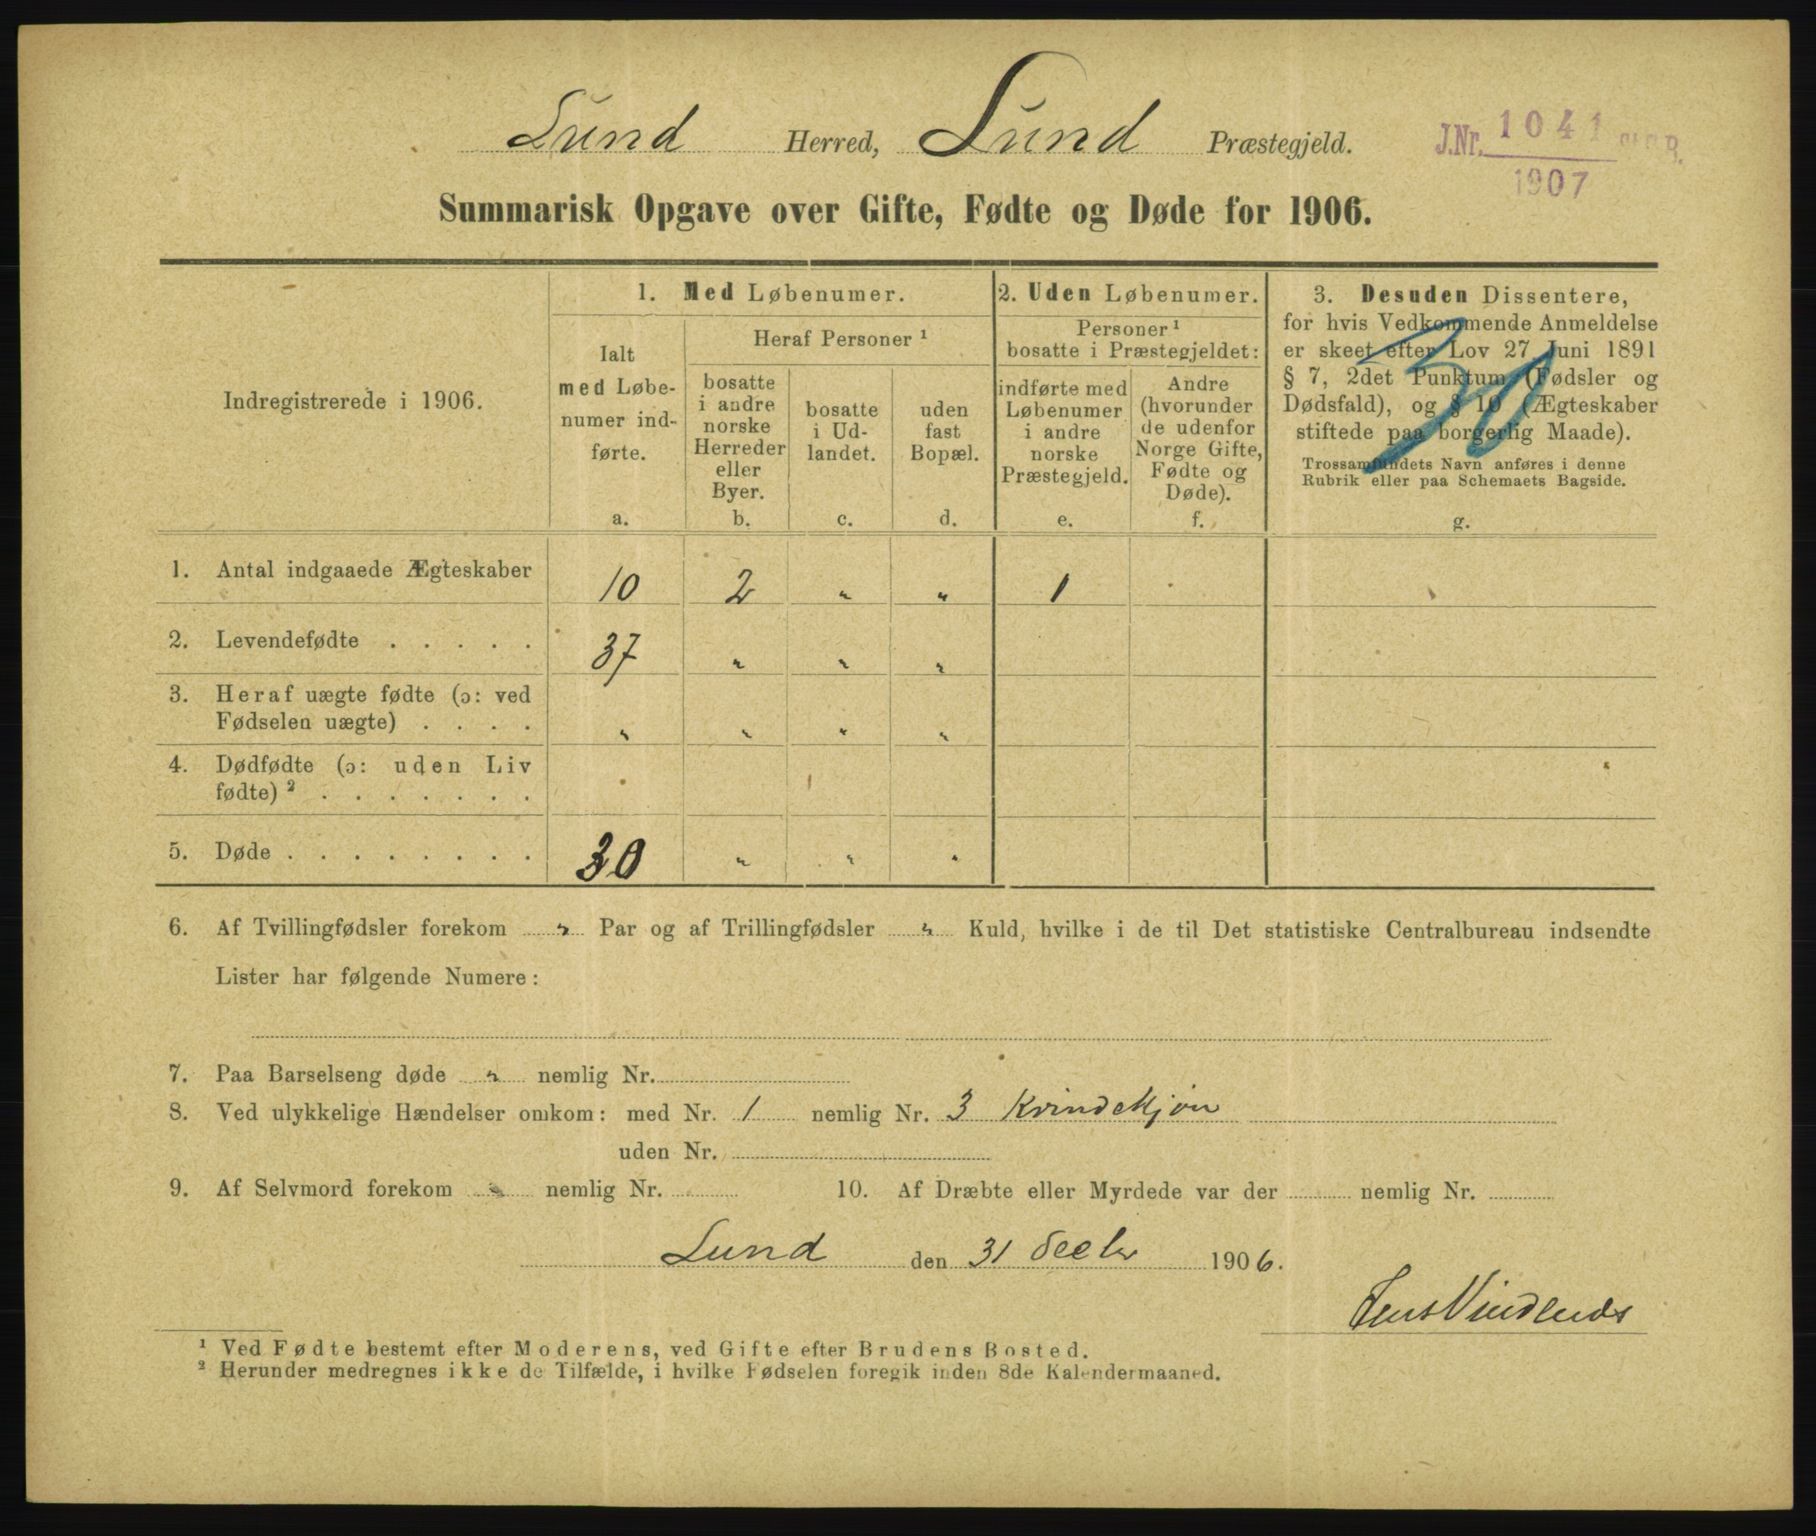 Lund Herred, Lund Præstegjeld.
J.Nr. 1041
1907
Summarisk Opgave over Gifte, Fødte og Døde for 1906.
Indregistrerede i 1906.
1. Med Løbenumer.
Ialt
med Løbe-
numer ind-
førte.
a.
Heraf Personer ¹
bosatte
i andre
norske
Herreder
eller
Byer.
b.
bosatte
i Ud-
landet.
c.
uden
fast
Bopæl.
d.
2. Uden Løbenumer.
Personer ¹
bosatte i Præstegjeldet:
indførte med
Løbenumer
i andre
norske
Præstegjeld.
e.
Andre
(hvorunder
de udenfor
Norge Gifte,
Fødte og
Døde).
f.
3. Desuden Dissentere,
for hvis Vedkommende Anmeldelse
er skeet efter Lov 27 Juni 1891
§ 7, 2det Punktum (Fødsler og
Dødsfald), og § 10 (Ægteskaber
stiftede paa borgerlig Maade).
Trossamfundets Navn anføres i denne
Rubrik eller paa Schemaets Bagside.
g.
1. Antal indgaaede Ægteskaber 10 2 " " 1
2. Levendefødte . . . . . 37 " " "
3. Heraf uægte fødte (ɔ: ved
Fødselen uægte) . . . . " " " "
4. Dødfødte (ɔ: uden Liv
fødte) ² . . . . . . .
5. Døde . . . . . . . . 30 " " "
6. Af Tvillingfødsler forekom " Par og af Trillingfødsler " Kuld, hvilke i de til Det statistiske Centralbureau indsendte
Lister har følgende Numere:
7. Paa Barselseng døde " nemlig Nr.
8. Ved ulykkelige Hændelser omkom: med Nr. 1 nemlig Nr. 3 Kvindekjøn
uden Nr.
9. Af Selvmord forekom " nemlig Nr. 10. Af Dræbte eller Myrdede var der nemlig Nr.
Lund den 31 Decbr 1906.
¹ Ved Fødte bestemt efter Moderens, ved Gifte efter Brudens Bosted.
² Herunder medregnes ikke de Tilfælde, i hvilke Fødselen foregik inden 8de Kalendermaaned.